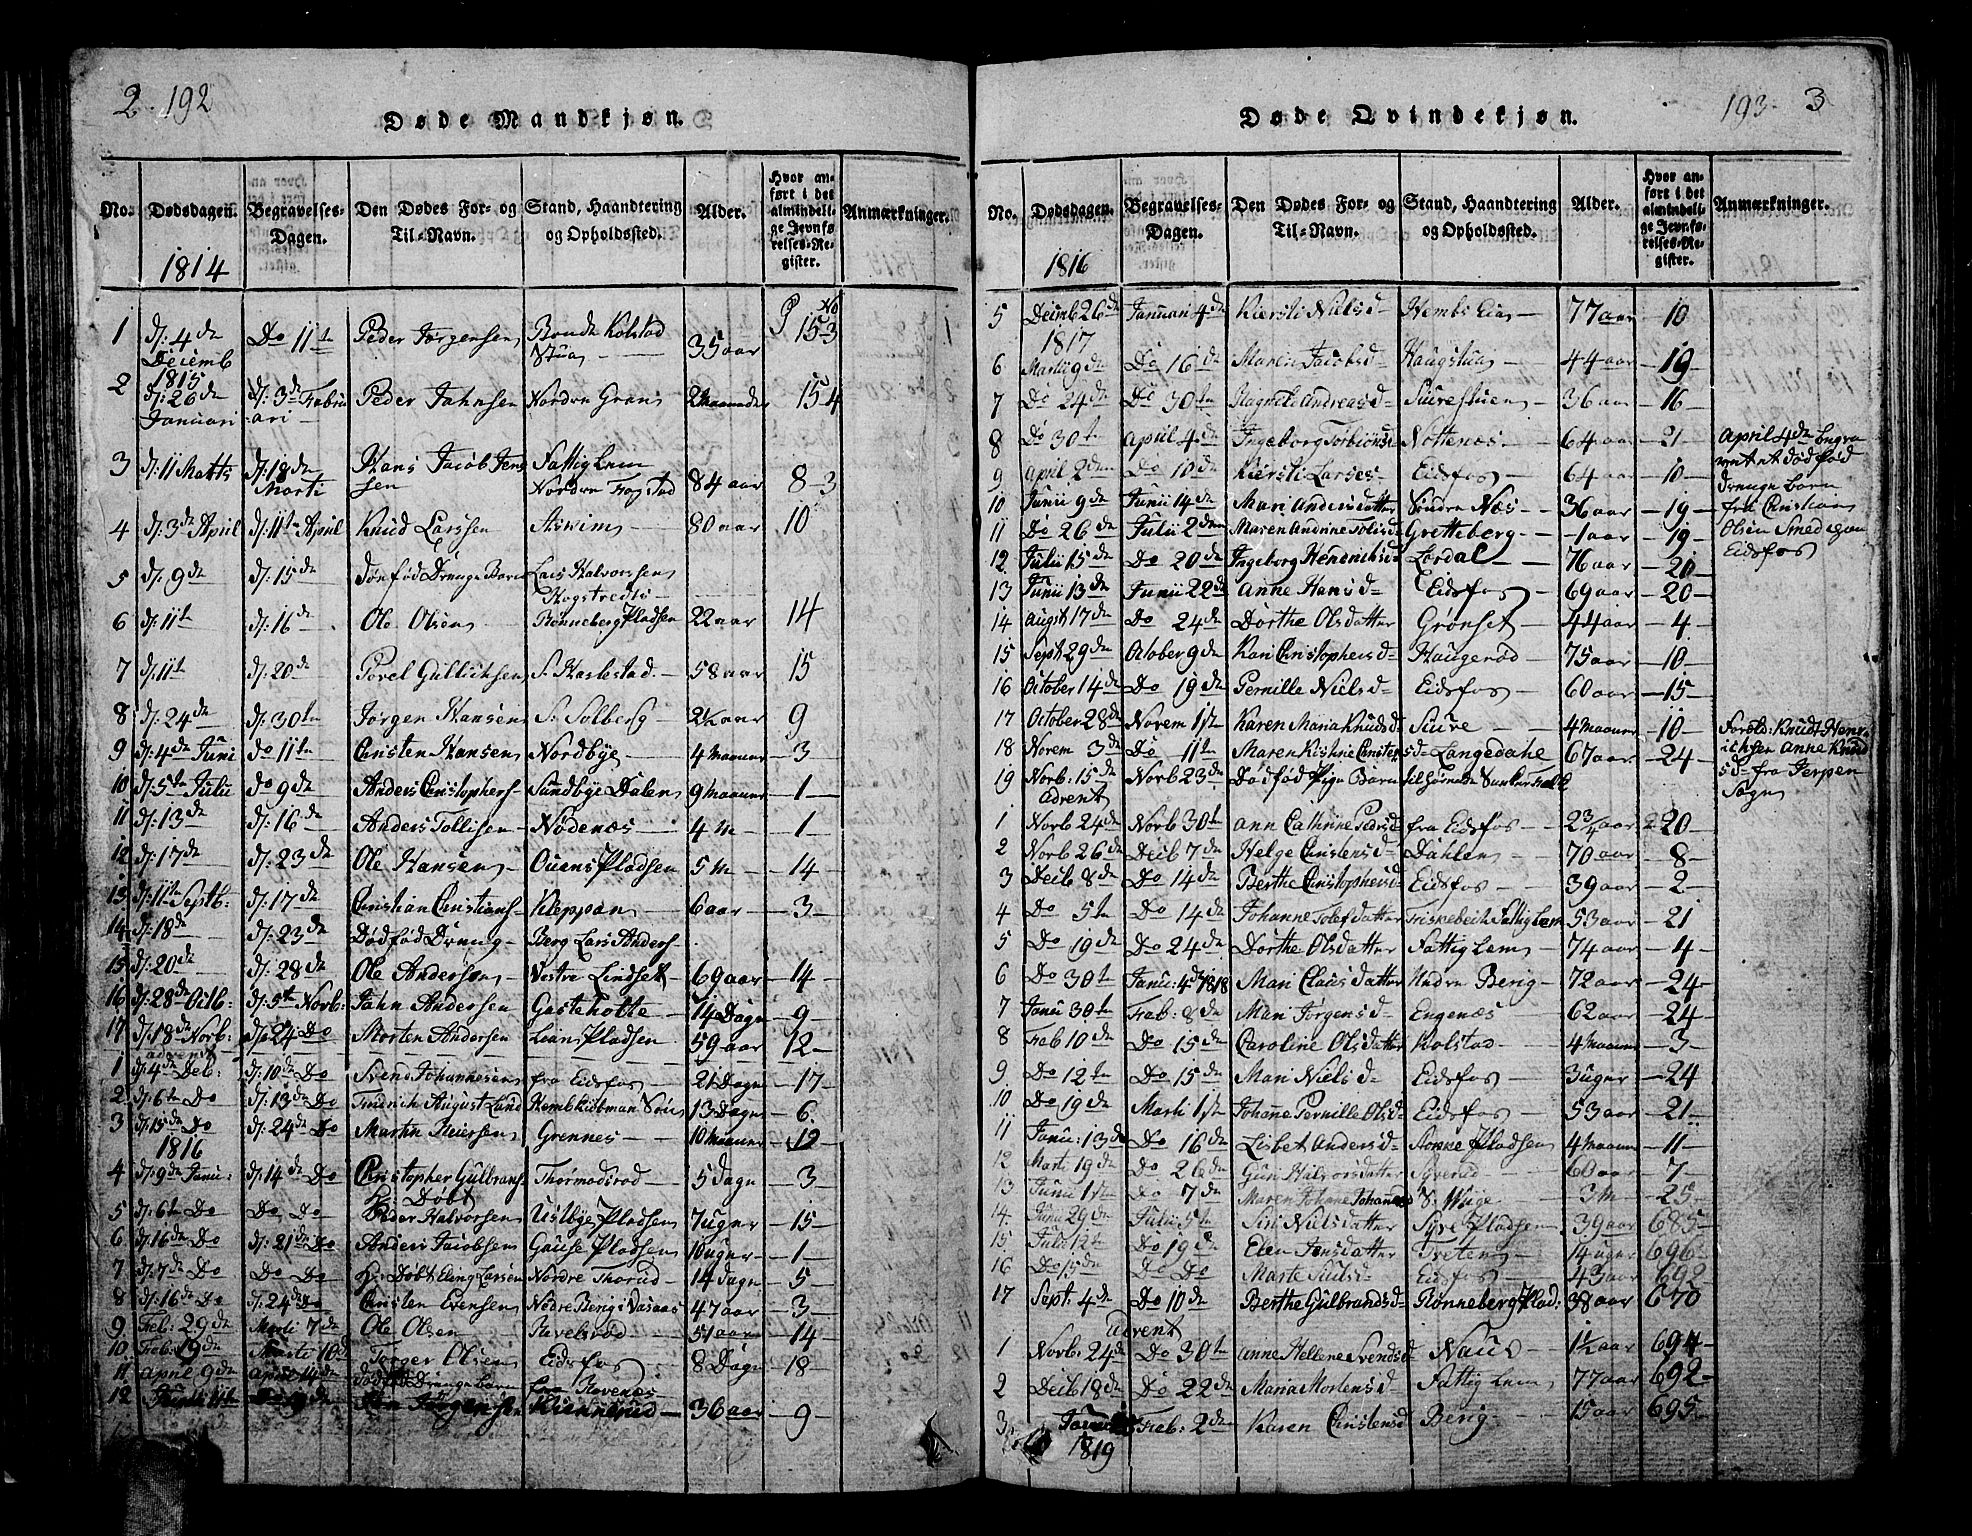 2. 192
Døde Mandkjøn.
No. Dødsdagen. Begravelses-Dagen. Den Dødes For- og Til-Navn. Stand, Haandtering og Opholdssted. Alder. Hvor anført i det almindelige Jevnførelses-Register. Anmærkninger.
1814
1 d: 4de Decemb Do 11te Peder Jørgensen Kolstad Stua 35 aar P 15 No 3
1815
2 d: 26de Januari d: 3de Februari Peder Jahnsen Nordre Grans 2 Maaneder 15 4
3 d: 11 Matts d: 18de Marti Hans Jacob Jensen Fattig Lem Nordre Fogstad 84 aar 8-3
4 d: 3de April d: 11te April Knud Larssen Aswim 80 aar 10
5 d: 9de d: 15de Dønfød Drenge Barn Lars Halvorssen
6 d: 11te d: 16de Ole Olsen Rønneberg Pladsen 22 aar 14
7 d: 11te d: 20de Povel Gullichsen S: Haslestad 58 aar 15
8 d: 24de d: 30te Jørgen Hansen S: Solberg 2½ aar 9
9 d: 4de Juni do 11te Christen Hansen Nordbye 4 Maaner 3
10 d: 5te Julii do 9de Anders Christophers Sundbye Dalen 9 Maaner 1
11 d: 13de d: 16de Anders Tollisen Nødenæs 4 M 1
12 d: 17de d: 23de Ole Hansen Ouens Pladsen 5 M 14
13 d: 11te Septb: d: 17de Christian Christians Kleppan 6 aar 3
14 d: 18de d: 23de Dødfød Dreng Berg Lars Anders
15 d: 20de d: 28de Ole Andersen Vestre Lindset 69 aar 14
16 d: 28de Octb: d: 5te Norb: Jahn Andersen Gasteholte 14 Dage 9
17 d: 18de Norb: d: 24 Do Morten Andersen Lians Pladsen 59 aar 12
advent
1 d: 4de Deb: d: 10de Do Svend Johannesen fra Eidsfos 21 Dagr 17
2 d: 6te Do d: 13de Do Friderich August Lund 13 Dagr 6
3 d: 15de Do d: 24de Do Martin Grennes 10 Maaner 12
1816
4 d: 9de Janu: d: 14de Do Christopher Gulbrans Thormodsrod 5 dagr 3
5 d: 6te Do Do Do H: Døbt Peder Halvorsen Ulsbye Pladsen 7 uger 15
6 d: 16de Do d: 21de Do Anders Jacobsen Gause Pladsen 10 uger 1
7 d: 7de Do Do Do H: Døbt Eling Larsen Nordre Thorud 14 dagr 5
8 d: 16de Do d: 24de Do Christen Evensen Nødre Berig 47 aar 3
9 Feb: 29de Marti 7de Ole Olsen Revelsrod 51 aar 14
10 Feb: 19de Marti 10de Torger Olsen Eidsfos 8 Dagr 18
11 April 9de April 14de dødfød Drenge barn fra Rovenæs
12 Junii 11te Do 19de Jørgensen 36 aar 9
193 3
Døde Qvindekjøn.
No. Dødsdagen. Begravelses-Dagen. Den Dødes For- og Til-Navn. Stand, Haandtering og Opholdssted. Alder. Hvor anført i det almindelige Jevnførelses-Register. Anmærkninger.
1816
5 Decmb 26de Januari 4de Kiersti Nielsd Hembs Eie 77 aar 10
1817
6 Marti 9de Do 16de Maren Jacobsd Haugstua 44 aar 19
7 Do 24de Do 30te Ragnild Andreasd Suurestuen 36 aar 16
8 Do 30te April 4de Ingeborg Torbiønsd Nøttenæs 64 aar 21 April 4de begra
9 April 2den Do 10de Kiersti Larses Eidsfos 64 aar 10 dødfød drenge barn
10 Junii 9de Junii 14de Mari Andersdatter Søndre Næs 36 aar 19 fra Christian
11 Do 26de Julii 2den Maren Andrine Tolisd Gretteberg 1 aar 19 Olsen Smed paa
12 Julii 15de Do 20de Ingeborg Henrichsd Lordal 76 aar 20 Eidsfos
13 Junii 13de Junii 22de Anne Hansd Eidsfos 69 aar 20
14 August 17de Do 24de Dorthe Olsdatter Grønset 44 aar 4
15 Sept 29de October 9de Kari Christophersd Haugerod 75 aar 10
16 October 14de Do 19de Pernille Nielsd Eidsfos 60 aar 15
17 October 28de Novem 1ste Karen Maria Knudsd Suure 4 Maaner 10 Foreld: Knudt Hen
18 Novem 3de Do 11te Maren Kistine Christens d Langedahl 67 aar 24 richsen Anne Knud
19 Norb: 15de Norb 23de Dødfød Pige Barn sd fra Jerpen Sogn
advent
1 Norb 24de Norb 30te ann Cathrine Pedersd fra Eidsfos 2¾ aar 20
2 Norb 26de Decb 7de Helge Christensd Dahlen 70 aar 8
3 Decb 8de Do 14de Berthe Christophersd Eidsfos 39 aar 2
4 Do 5te Do 14de Johanne Tolefsdatter Fattig Lem 53 aar 21
5 Do 19de Do 24de Dorthe Olsdatter Fattig Lem 74 aar 4
6 Do 30te Janu: 4de 1818 Mari Clausdatter Nedre Berig 72 aar 24
7 Janu 30te Feb: 8de Mari Jørgensd Engenæs 62 aar 24
8 Feb 10de Do 15de Caroline Olsdatter Kolstad 4 Maaner 3
9 Do 12te Do 15de Mari Nielsd Eidsfos 3 uger 24
10 Do 19de Marti 1ste Johanne Pernille Olsd Eidsfos 53 aar 21
11 Janu: 13de Do 16de Lisbet Andersd Pladsen 4 Maaner 11
12 Marti 19de Do 26de Guri Halvorsdatter Syverud 60 aar 7
13 Junii 1ste Do 7de Maren Johane Johannesd S: Wige 3 M 25
14 Junii 29de Julii 5te Siri Nielsdatter Pladsen 39 aar 685
15 Julii 12te Do 19de Elen Jensdatter Treten 14 uger 696
16 Do 15de Do Do Marte Eidsfos 43 aar 692
17 Sept. 4de Do 10de Berthe Gulbrandsd Rønneberg Plad: 38 aar 670
Advent
1 Norb: 24de Do 30te Anne Hellene Svendsd Naus 1½ aar 694
2 Decb 18de Do 22de Maria Mortensd Fattig Lem 77 aar 692
3 Janu 1819 Feb: 2de Karen Christensd Berig 15 aar 695